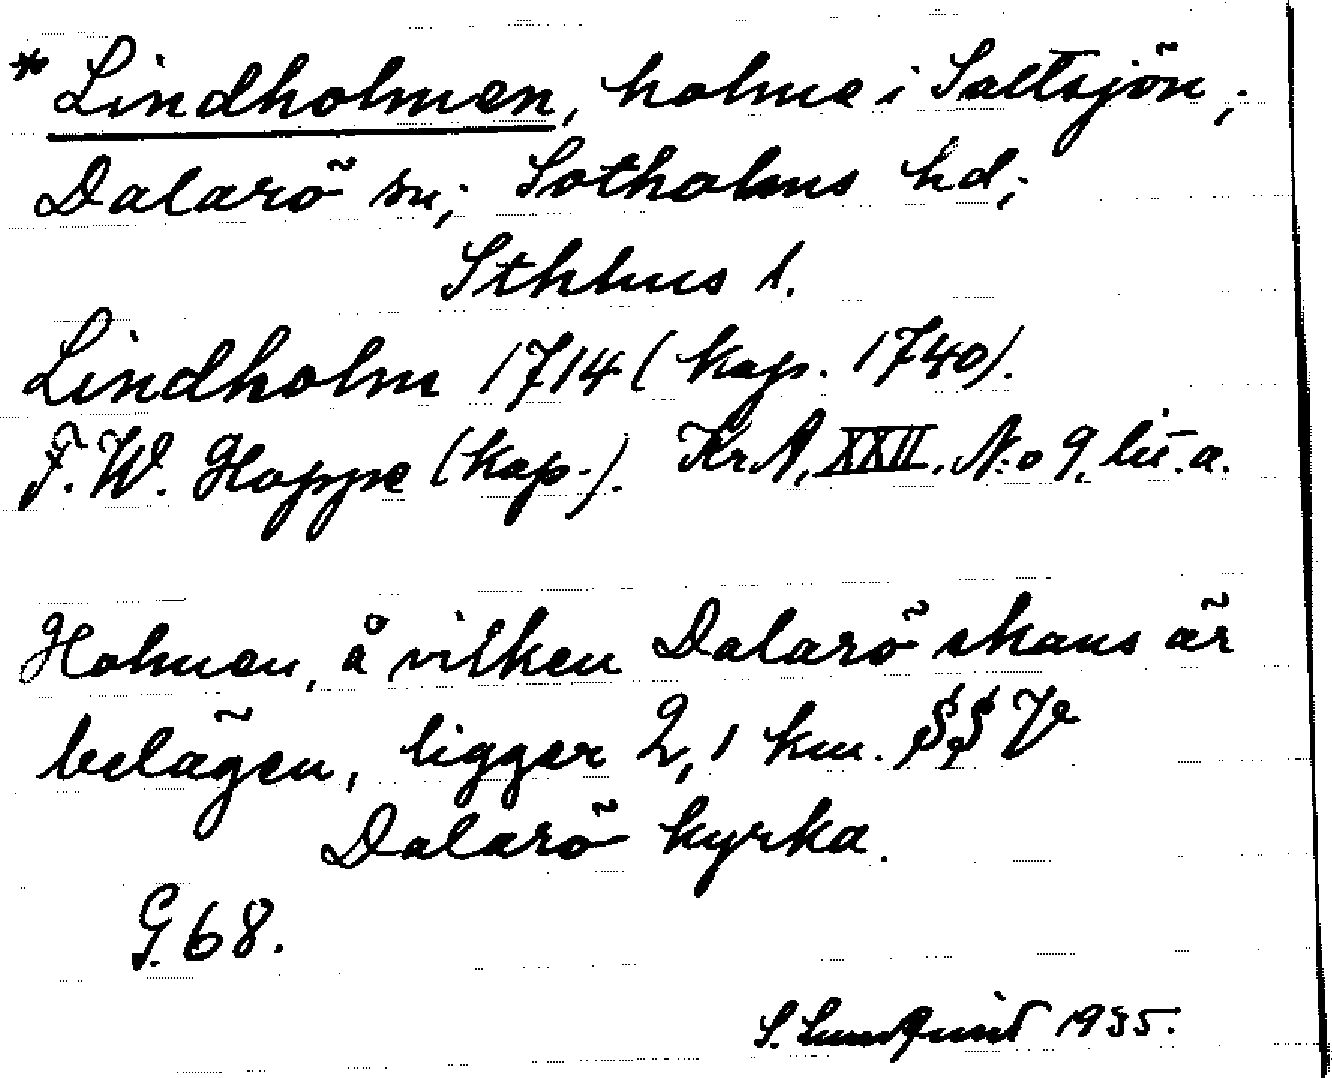 * Lindholmen, holme i Saltsjön;
Dalarö sn; Sotholms hd;
Sthlms l.
Lindholm 1714 (kop. 1740).
F. W. Hoppe (kop.). KrA, XXII. N:o 9, lit. a.
Holmen, å vilken Dalarö skans är
belägen, ligger 2,1 km. SSV
Dalarö kyrka.
G. 68.
S. Lundqvist 1935.